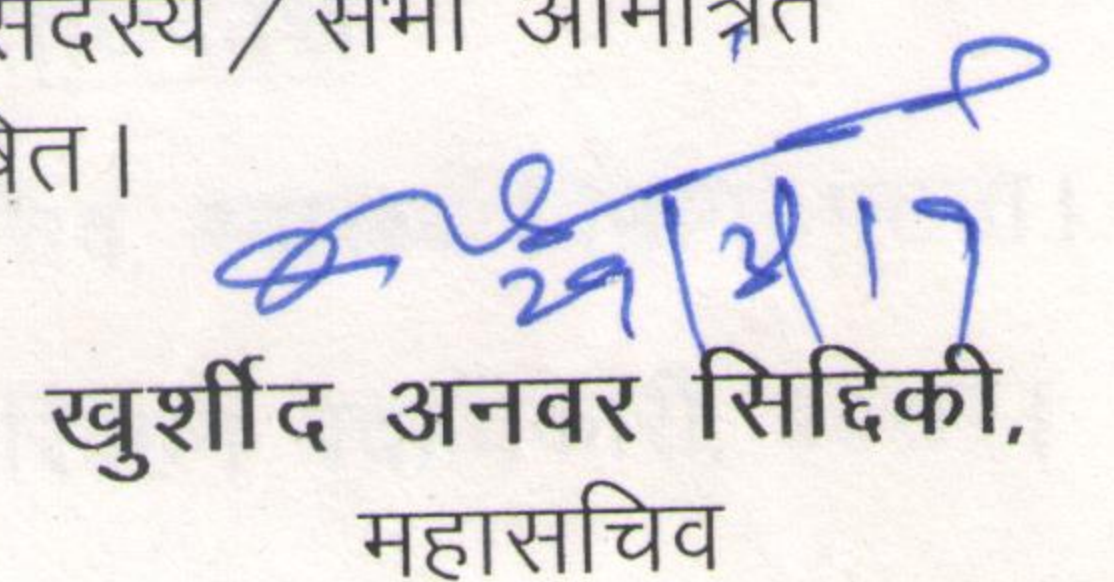 सदस्य / सभी आमंत्रित
षित।
29/3/17
खुर्शीद अनवर सिद्दिकी,
महासचिव